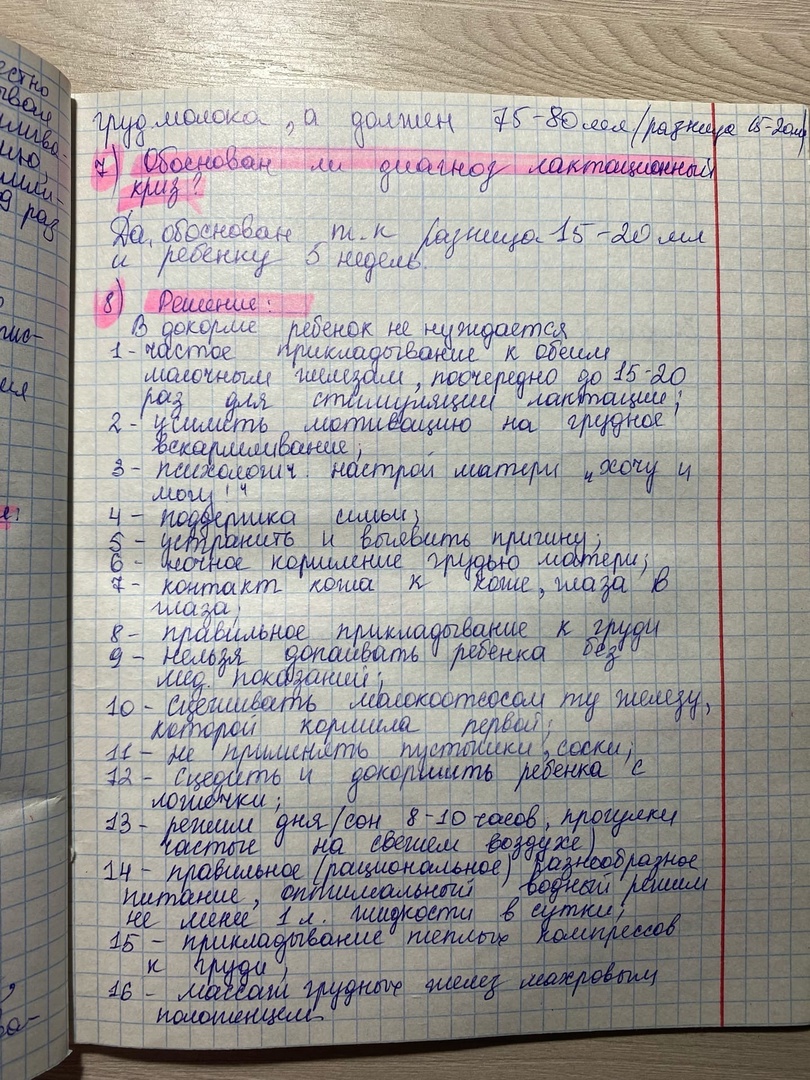 груд.молока, а должен 75-80мл/разница 15-20мл
7) Обоснован ли диагноз лактационный
криз?
Да, обоснован т.к разница 15-20 мл
и ребенку 5 недель.
8) Решение:
В докорме ребенок не нуждается
1- частое прикладывание к обеим
молочным железам, поочередно до 15-20
раз для стимуляции лактации;
2- усилить мотивацию на грудное
вскармливание;
3- психологич. настрой матери „хочу и
могу!"
4- поддержка семьи;
5- устранить и выявить причину;
6- ночное кормление грудью матери;
7- контакт кожа к коже, глаза в
глаза;
8- правильное прикладывание к груди
9- нельзя допаивать ребенка без
мед показаний;
10- сцеживать молокоотсосом ту железу,
которой кормила первой;
11- не применять пустышки, соски;
12- сцедить и докормить ребенка с
ложечки;
13- режим дня/сон 8-10 часов, прогулки
частые на свежем воздухе)
14- правильное (рациональное) разнообразное
питание, оптимальный водный режим
не менее 1 л. жидкости в сутки;
15- прикладывание теплых компрессов
к груди;
16- массаж грудных желез махровым
полотенцем.